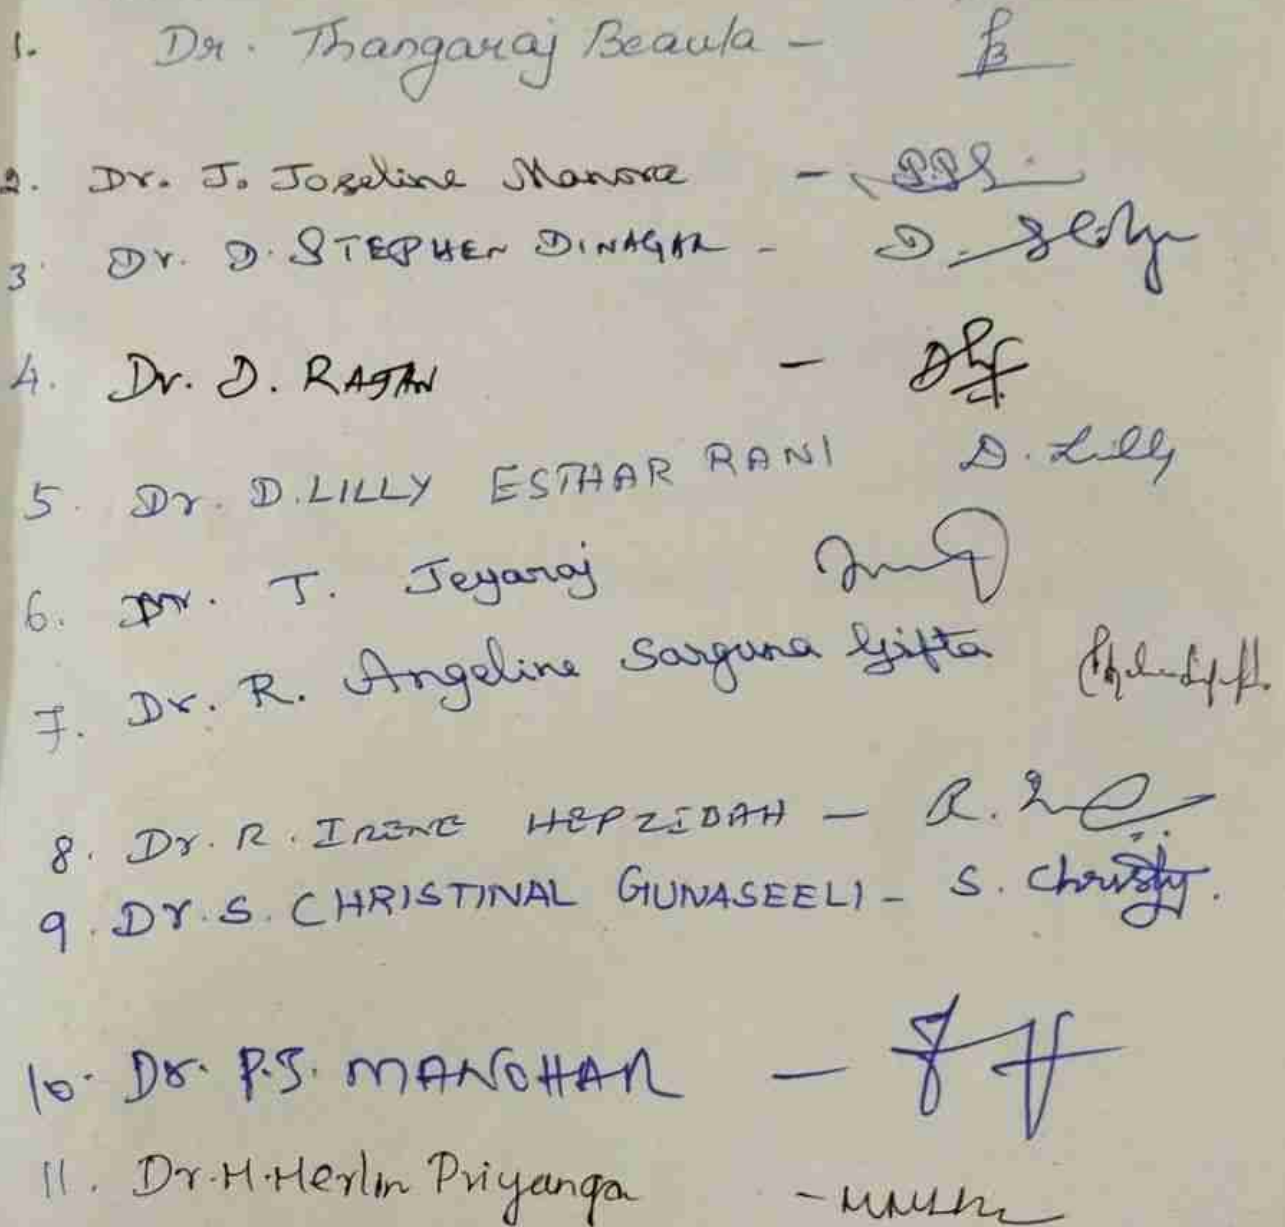 1. Dr. Thangaraj Beaula -
2. Dr. J. Joseline Manora -
3 Dr. D. STEPHEN DINAGAR - D.
4. Dr. D. RAJAN -
5. Dr. D. LILLY ESTHAR RANI D. Lilly
6. Dr. T. Jeyaraj
7. Dr. R. Angeline Sarguna Gifta
8. Dr. R. IRENE HEPZIBAH - R.
9. Dr. S. CHRISTINAL GUNASEELI - S. Christy.
10. Dr. P.J. MANOHAR -
11. Dr. H. Herlin Priyanga -